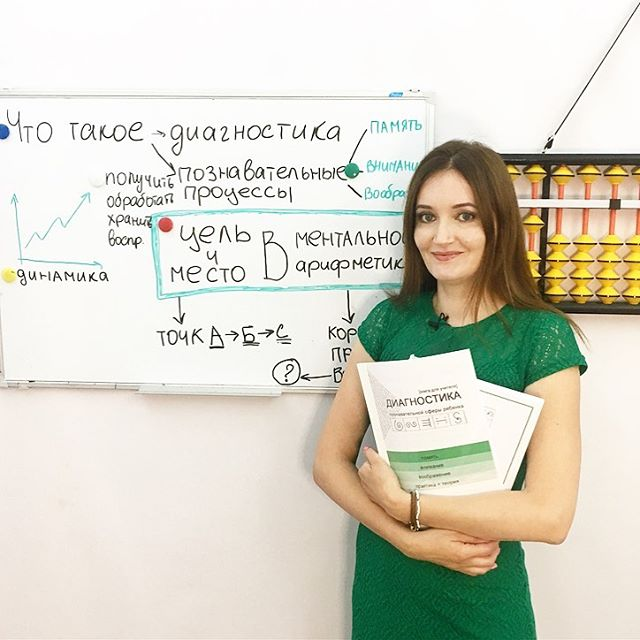 Что такое → диагностика
ПАМЯТЬ
ВНИМАНИ
Вообра
познавательные
процессы
получить
обработать
хранить
воспр.
динамика
цель
и
место
В
ментально
арифметик
ТОЧК А→Б→С
КОР
ПР
В
?
[книга для учителя]
ДИАГНОСТИКА
познавательной сферы ребенка
память
внимание
воображение
практика + теория